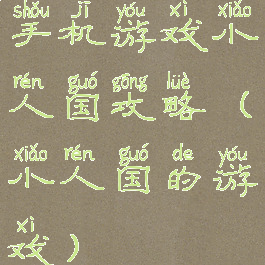 shǒu jī yóu xì xiǎo
手机游戏小
rén guó gōng lüè
人国攻略（
xiǎo rén guó de yóu
小人国的游
xì
戏）